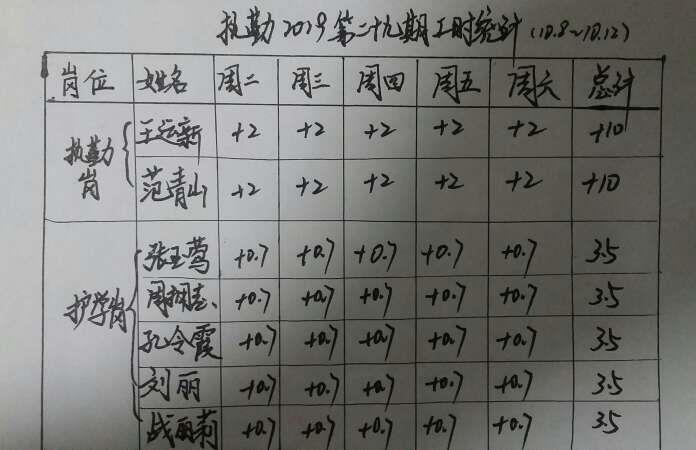 执勤2019第二十九期工时统计(10.8~10.12)
岗位 姓名 周二 周三 周四 周五 周六 总计
执勤岗 王运新 +2 +2 +2 +2 +2 +10
范青山 +2 +2 +2 +2 +2 +10
护学岗 张玉莺 +0.7 +0.7 +0.7 +0.7 +0.7 3.5
周 +0.7 +0.7 +0.7 +0.7 +0.7 3.5
孔令霞 +0.7 +0.7 +0.7 +0.7 +0.7 3.5
刘丽 +0.7 +0.7 +0.7 +0.7 +0.7 3.5
战丽莉 +0.7 +0.7 +0.7 +0.7 +0.7 3.5